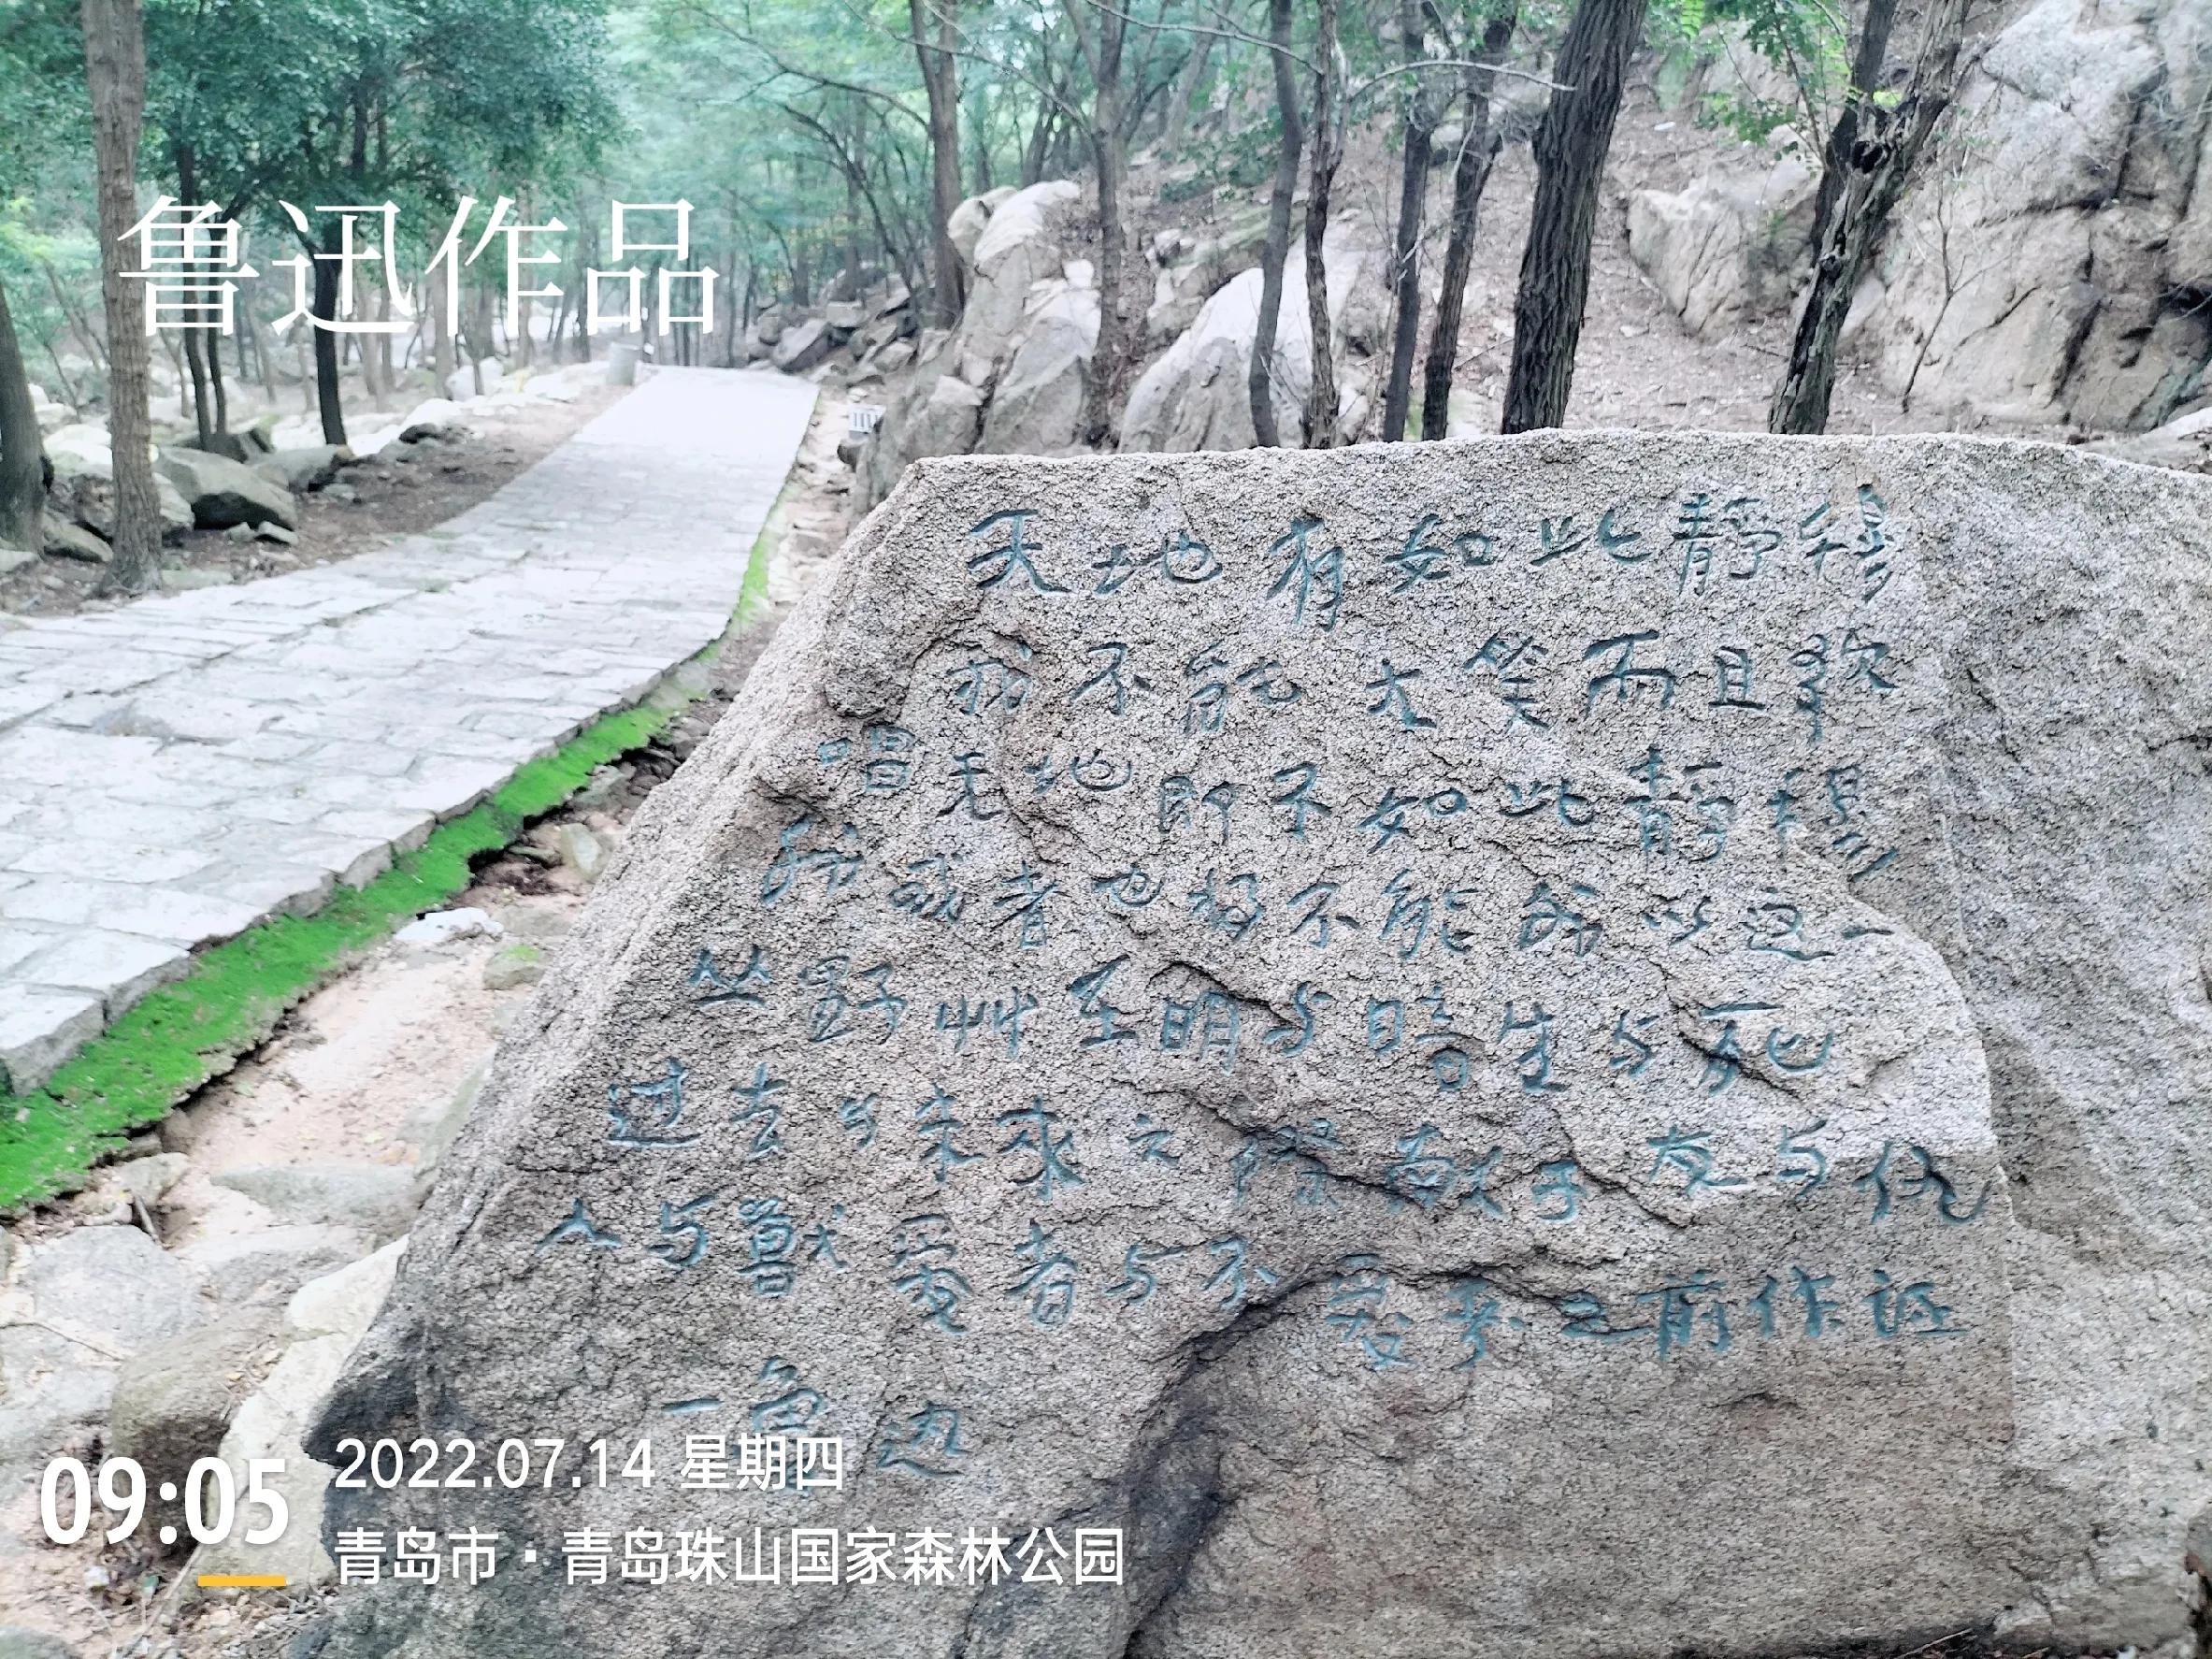 鲁迅作品
天地有如此靜穆
我不能大笑而且歌
唱天地即不如此靜穆
我或者也将不能我以这一
丛野艸在明与暗生与死
过去与未来之際献于友与仇
人与獸爱者与不爱者之前作证
一鲁迅
09:05
2022.07.14 星期四
青岛市·青岛珠山国家森林公园